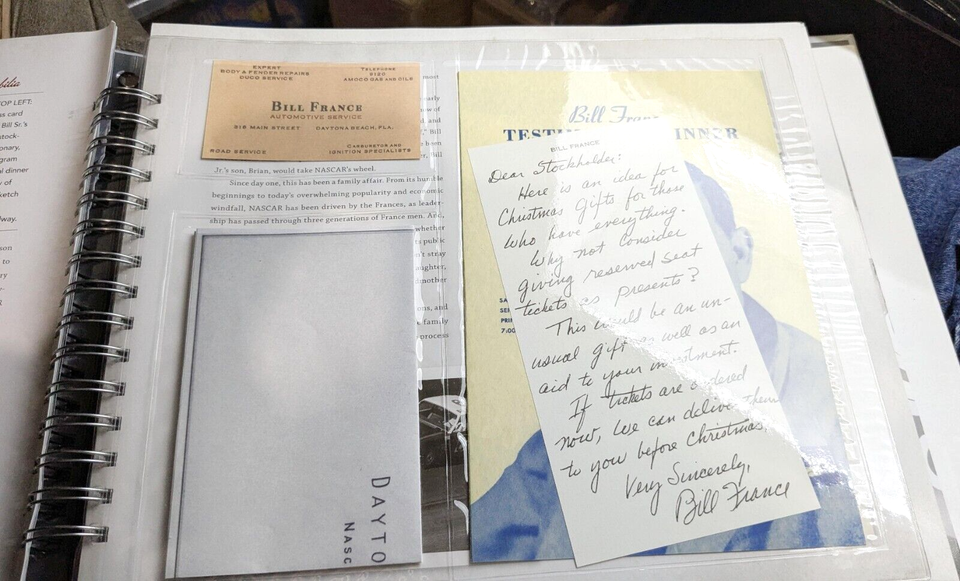 OP LEFT:
s card
Bill Sr.'s
stock-
onary,
gram
l dinner
w of
ketch
lway.
son
to
ry
l
EXPERT
BODY & FENDER REPAIRS
DUCO SERVICE
TELEPHONE
9120
AMOCO GAS AND OILS
BILL FRANCE
AUTOMOTIVE SERVICE
316 MAIN STREET DAYTONA BEACH, FLA.
ROAD SERVICE
CARBURETOR AND
IGNITION SPECIALISTS
Jr.'s son, Brian, would take NASCAR's wheel.
Since day one, this has been a family affair. From its humble
beginnings to today's overwhelming popularity and economic
windfall, NASCAR has been driven by the Frances, as leader-
ship has passed through three generations of France men. And,
ts public
n't stray
ughter,
nother
ons, and
family
process
DAYTO
NASC
Bill Fran
TESTI INNER
SA
SE
PRI
7:00
BILL FRANCE
Dear Stockholder:
Here is an idea for
Christmas gifts for those
who have everything.
Why not consider
giving reserved seat
tickets as presents?
This would be an un-
usual gift as well as an
aid to your investment.
If tickets are ordered
now, we can deliver them
to you before Christmas.
Very Sincerely,
Bill France